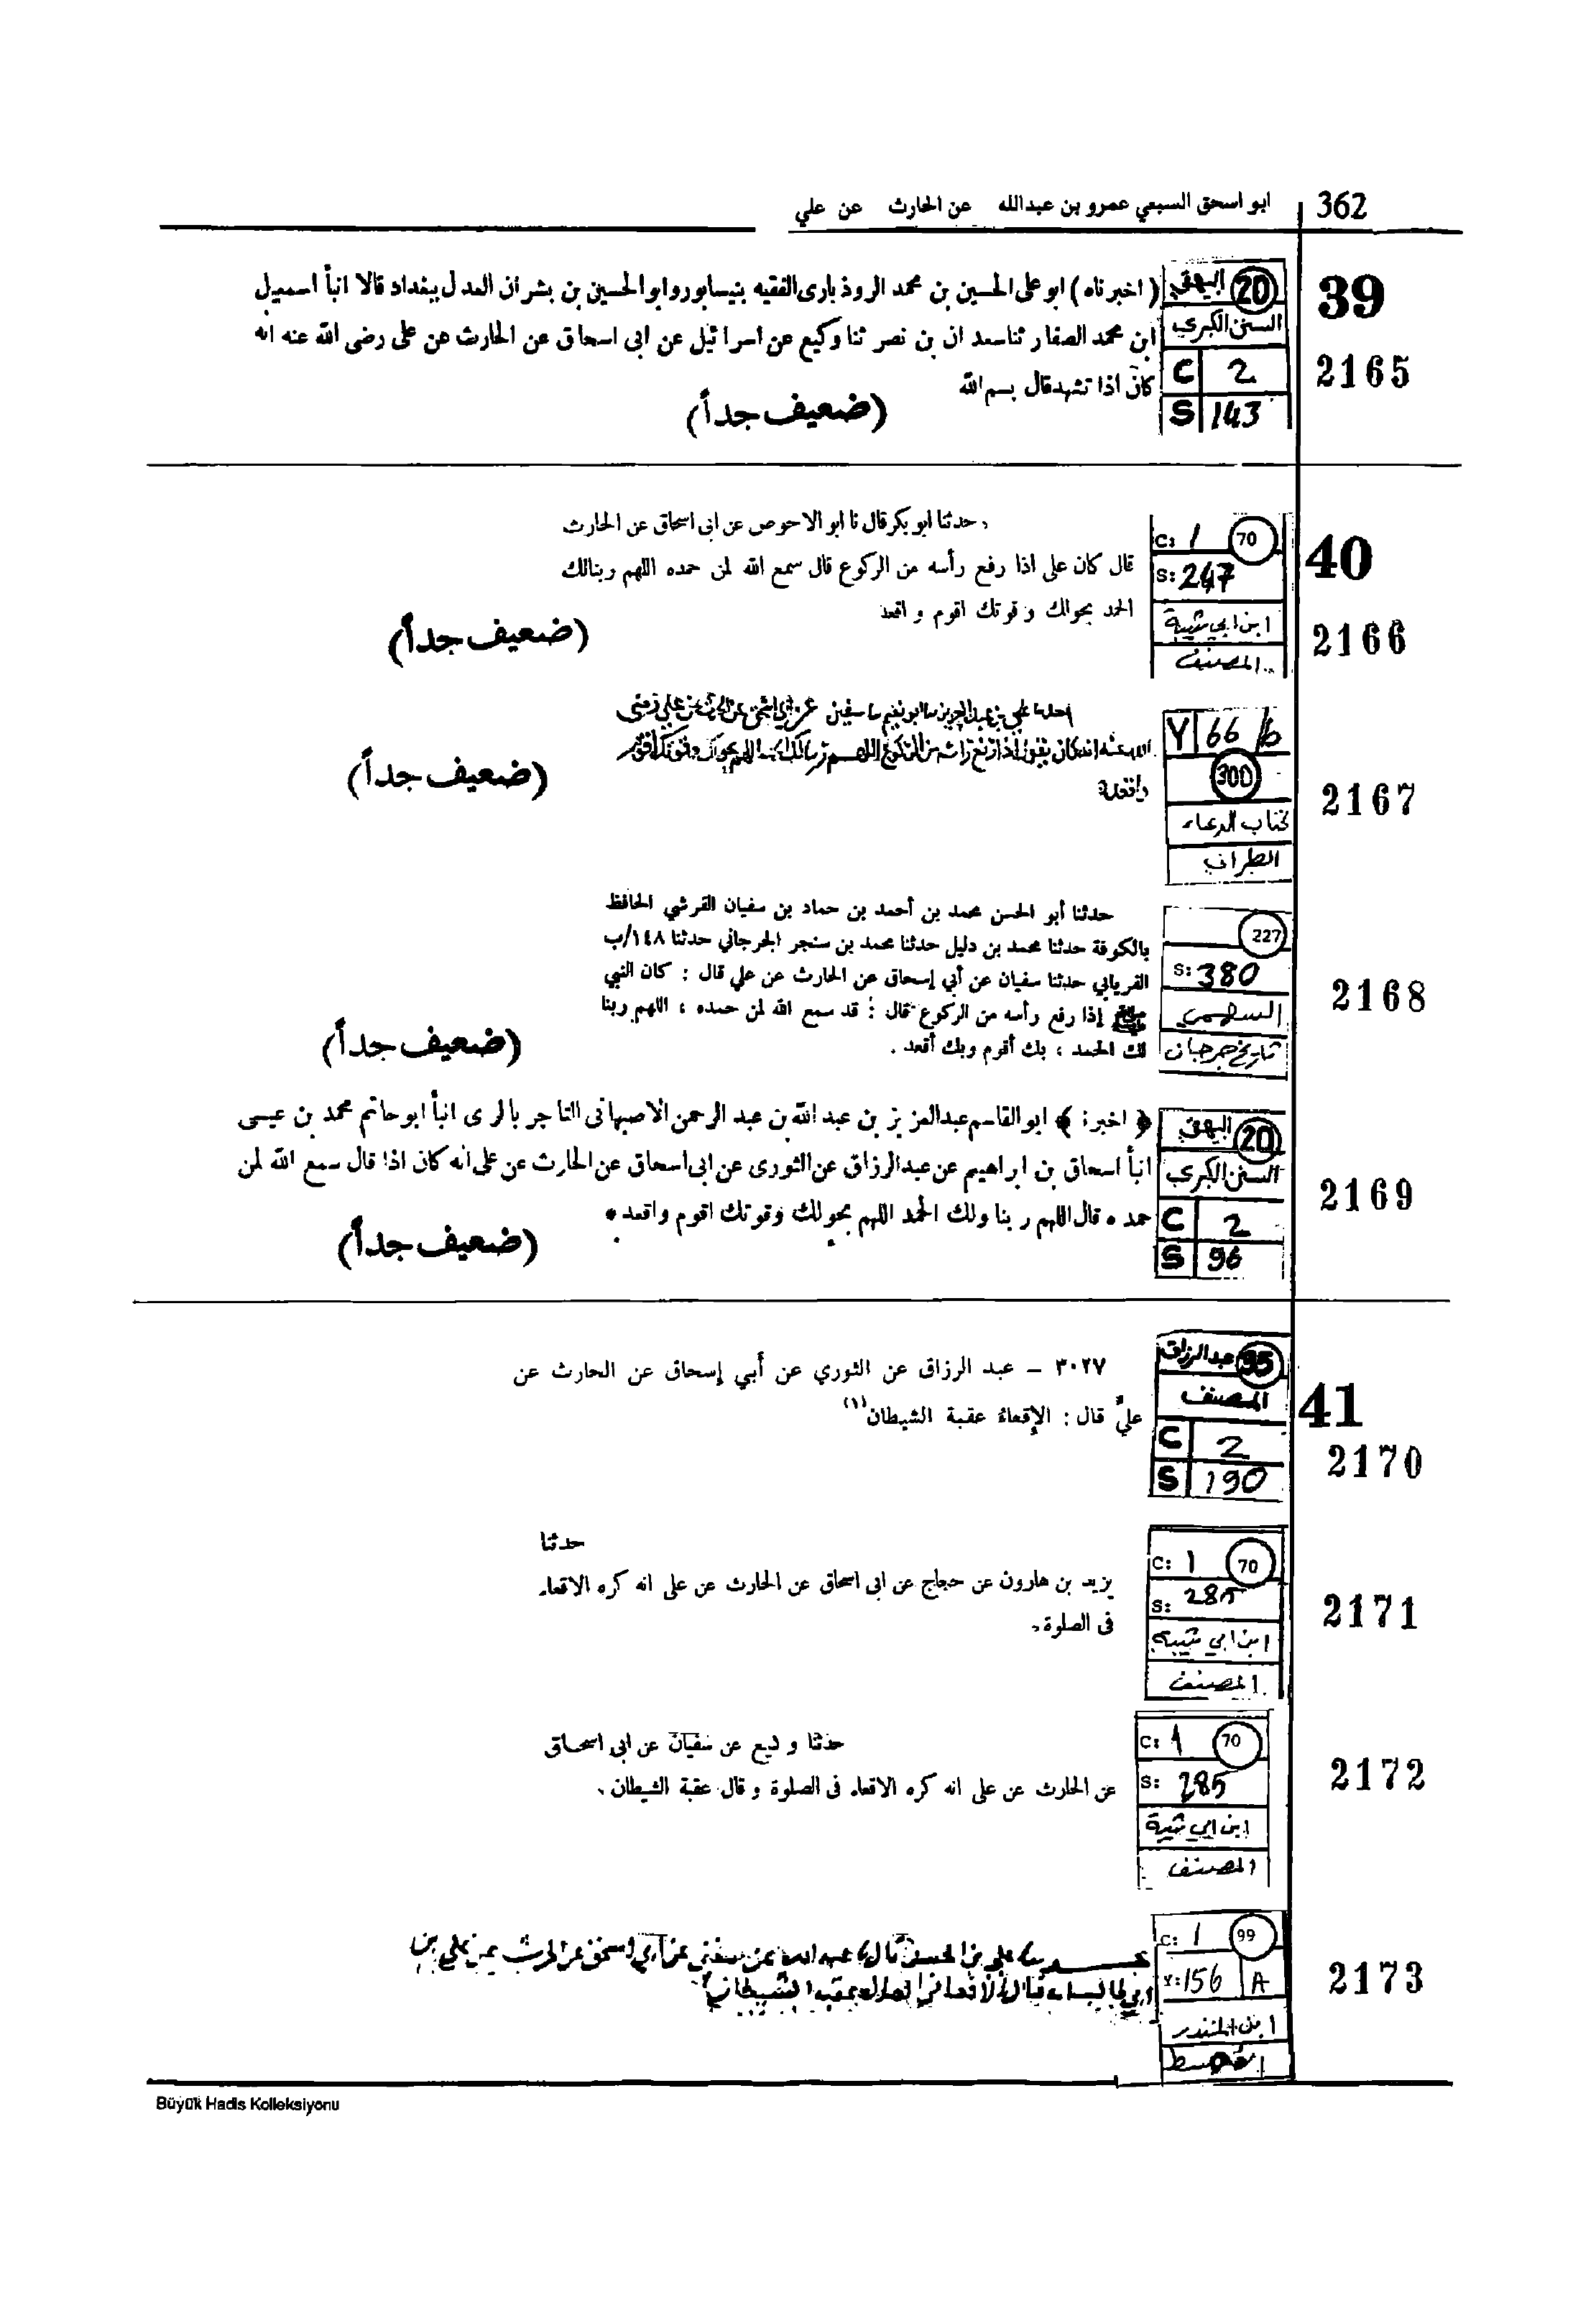 362
ابو اسحق السبعي عمرو بن عبدالله عن الحارث عن علي
39
2165
20 البيهقي
السنن الكبرى
C 2
S 143
( اخبرناه ) ابو علي الحسين بن محمد الروذبارى الفقيه بنيسابور وابو الحسين بن بشران العدل ببغداد قالا انبأ اسمعيل
ابن محمد الصفار ثنا سعدان بن نصر ثنا وكيع عن اسرائيل عن ابى اسحاق عن الحارث عن على رضى الله عنه انه
كان اذا تشهد قال بسم الله
(ضعيف جداً)
40
2166
C: 1 70
S: 247
ابن ابي شيبة
المصنف
حدثنا ابو بكر قال نا ابو الاحوص عن ابى اسحاق عن الحارث
قال كان على اذا رفع رأسه من الركوع قال سمع الله لمن حمده اللهم ربنا لك
الحمد بحولك و قوتك اقوم و اقعد
(ضعيف جداً)
2167
Y 66 b
300
كتاب الدعاء
الطبراني
حدثنا علي بن عبد العزيز ثنا ابو نعيم ثنا سفين عن ابي اسحق عن الحرث عن علي رضي
الله عنه انه كان يقول اذا رفع راسه من الركوع اللهم ربنا لك الحمد اللهم بحولك وقوتك اقوم
واقعد
(ضعيف جداً)
2168
227
S: 380
السهمي
تاريخ جرجان
حدثنا أبو الحسن محمد بن أحمد بن حماد بن سفيان القرشي الحافظ
بالكوفة حدثنا محمد بن دليل حدثنا محمد بن سنجر الجرجاني حدثنا ١٤٨/ب
الفريابي حدثنا سفيان عن أبي إسحاق عن الحارث عن علي قال : كان النبي
ﷺ إذا رفع رأسه من الركوع قال : قد سمع الله لمن حمده ، اللهم ربنا
لك الحمد ، بك أقوم وبك أقعد .
(ضعيف جداً)
2169
20 البيهقي
السنن الكبرى
C 2
S 96
﴿ اخبرنا ﴾ ابو القاسم عبد العزيز بن عبد الله بن عبد الرحمن الاصبهانى التاجر بالرى انبأ ابو حاتم محمد بن عيسى
انبأ اسحاق بن ابراهيم عن عبد الرزاق عن الثورى عن ابى اسحاق عن الحارث عن على انه كان اذا قال سمع الله لمن
حمده قال اللهم ربنا ولك الحمد اللهم بحولك وقوتك اقوم واقعد *
(ضعيف جداً)
41
2170
95 عبد الرزاق
المصنف
C 2
S 190
٣٠٢٧ – عبد الرزاق عن الثوري عن أبي إسحاق عن الحارث عن
عليّ قال : الإقعاء عقبة الشيطان(١)
2171
C: 1 70
S: 285
ابن ابي شيبة
المصنف
حدثنا
يزيد بن هارون عن حجاج عن ابى اسحاق عن الحارث عن على انه كره الاقعاء
فى الصلوة.
2172
C: 1 70
S: 285
ابن ابي شيبة
المصنف
حدثنا وكيع عن سفيان عن ابى اسحاق
عن الحارث عن على انه كره الاقعاء فى الصلوة و قال عقبة الشيطان .
2173
C: 1 99
Y: 156 A
ابن المنذر
علي بن الحسن قال ثنا عبد الله عن سفين عن ابي اسحق عن الحرث عن علي بن
ابي طالب قال الاقعا في الصلاه عقبه الشيطان
Büyük Hadis Kolleksiyonu